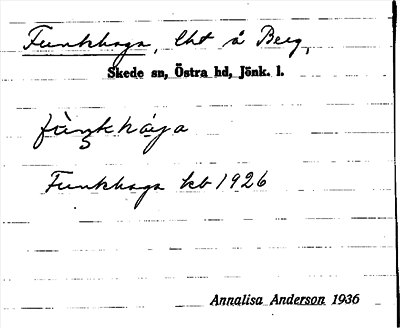 Funkhaga, lht å Berg,
Skede sn, Östra hd, Jönk. l.
Funkhaga kb 1926
Annalisa Anderson 1936